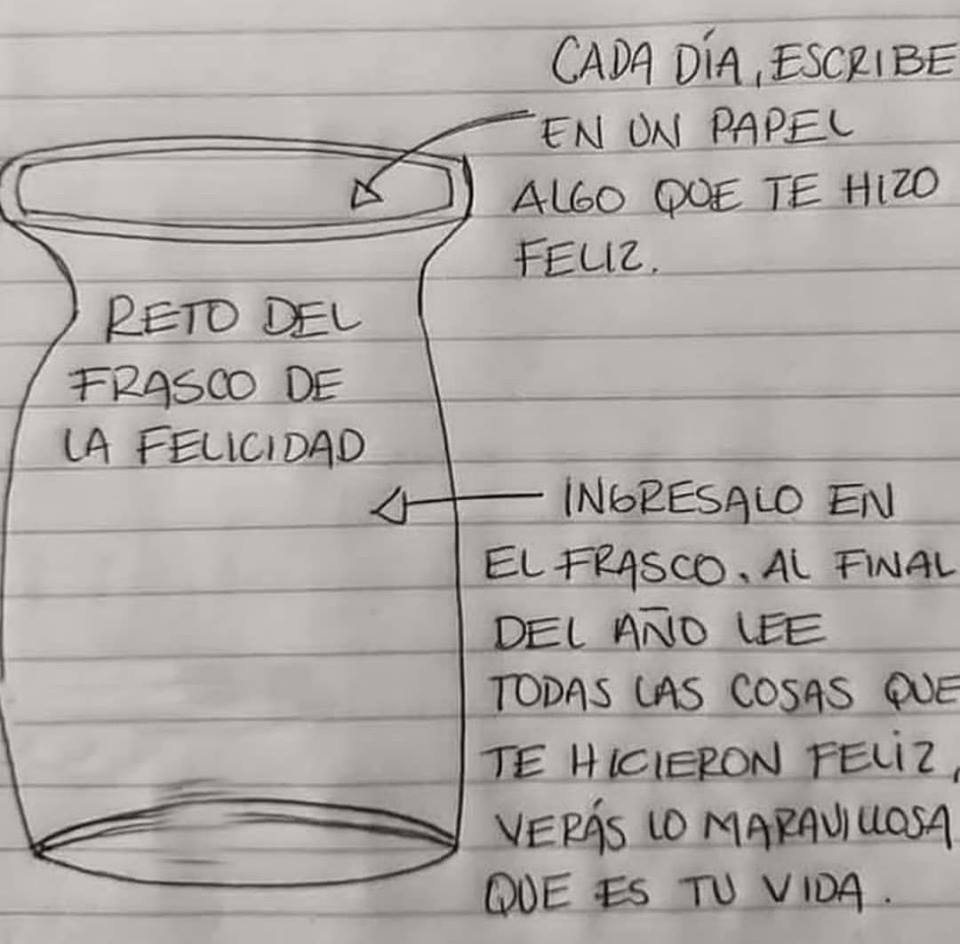 CADA DÍA, ESCRIBE
EN UN PAPEL
ALGO QUE TE HIZO
FELIZ.
RETO DEL
FRASCO DE
LA FELICIDAD
INGRESALO EN
EL FRASCO. AL FINAL
DEL AÑO LEE
TODAS LAS COSAS QUE
TE HICIERON FELIZ,
VERÁS LO MARAVILLOSA
QUE ES TU VIDA.